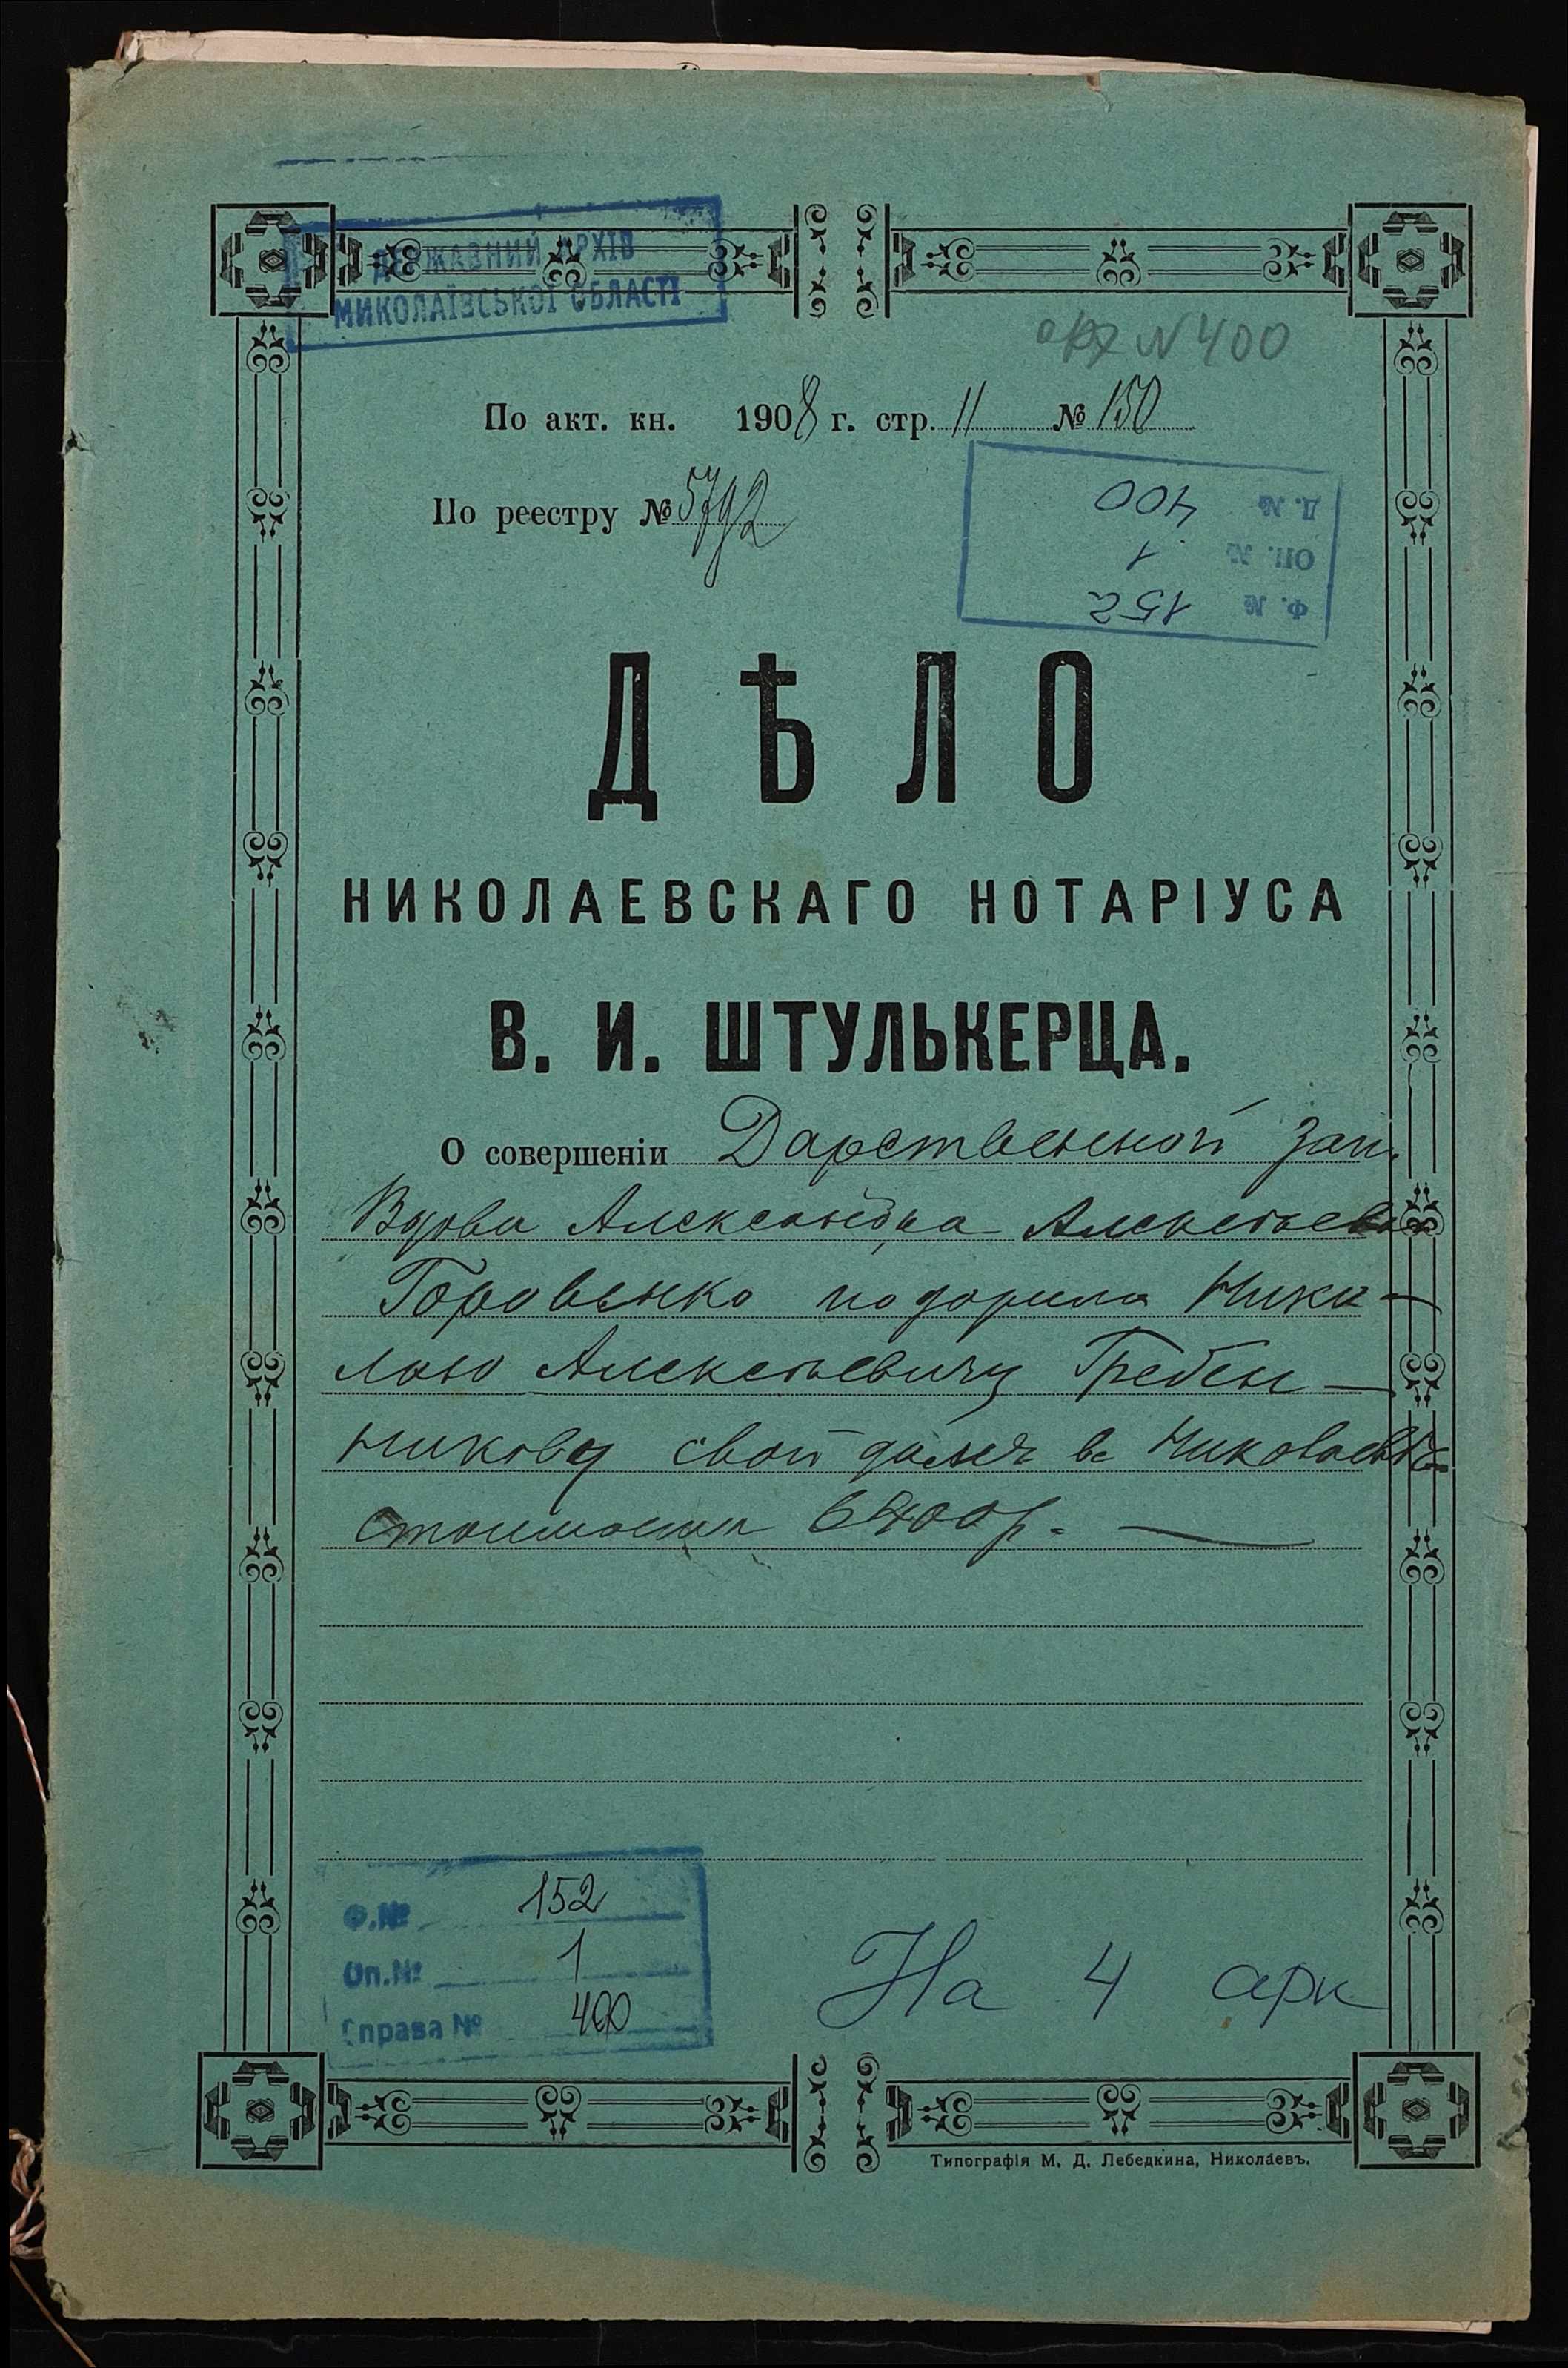 ДЕРЖАВНИЙ АРХІВ
МИКОЛАЇВСЬКОЇ ОБЛАСТІ
арх N 400
По акт. кн. 1908 г. стр. 11 № 150
По реестру № 5792
Д. № 400
Оп. № 1
Ф. № 152
ДѢЛО
НИКОЛАЕВСКАГО НОТАРІУСА
В. И. ШТУЛЬКЕРЦА.
О совершеніи Дарственной зап.
Вдова Александра Алексѣевна
Горовенко подарила Нико-
лаю Алексѣевичу Гребен-
никову свой домъ въ Николаевѣ
стоимости 6400 р.
Ф.№ 152
Оп.№ 1
Справа № 400
На 4 арк
Типографія М. Д. Лебедкина, Николаевъ.